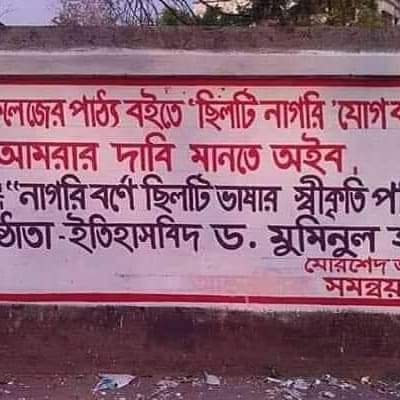 লেজের পাঠ্য বইতে 'ছিলটি নাগরি 'যোগ ক
আমরার দাবি মানতে অইব,
: "নাগরি বর্ণে ছিলটি ভাষার স্বীকৃতি প
ষ্ঠাতা - ইতিহাসবিদ ড. মুমিনুল হ
মোরশেদ আ
সমন্বয়